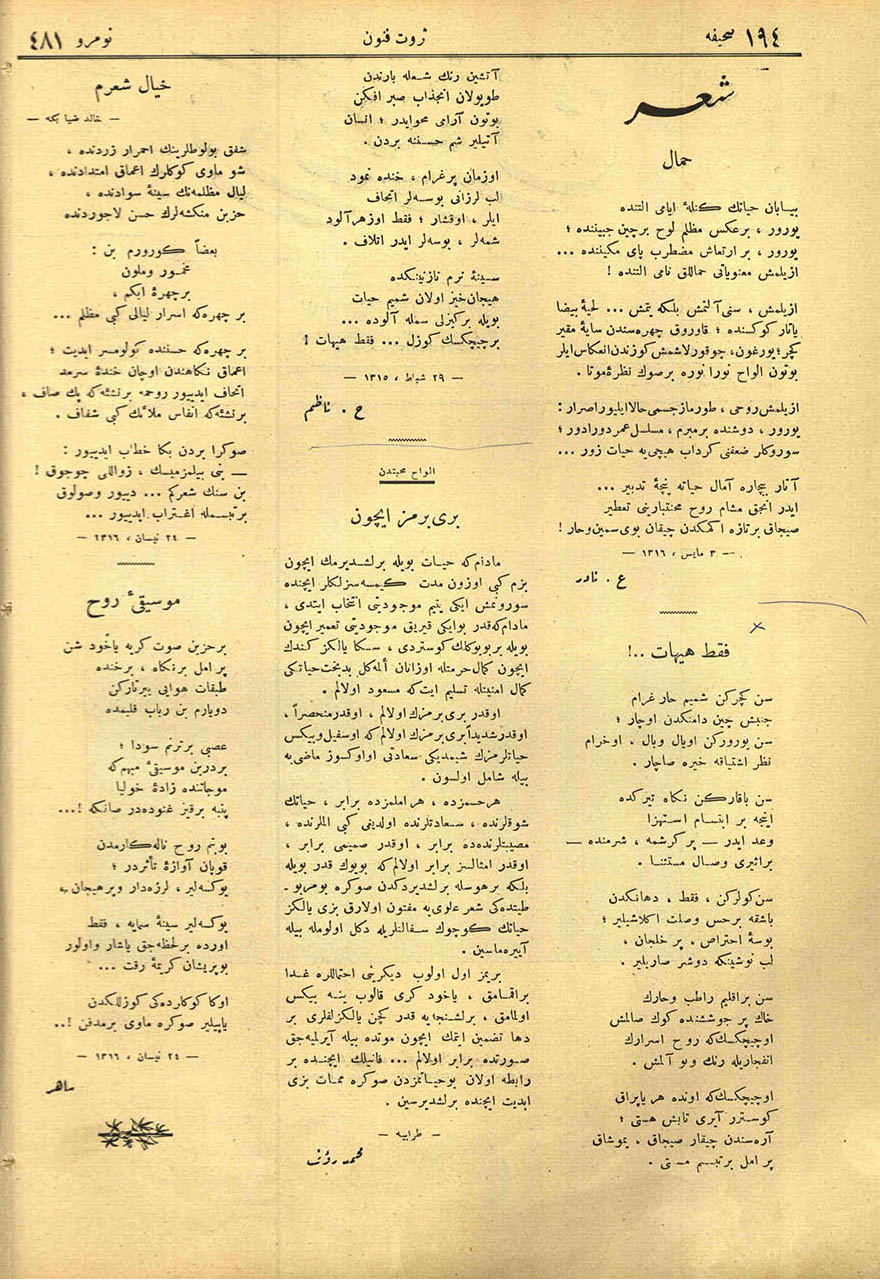 صحیفه ١٩٤
ثروت فنون
نومرو ٤٨١
شعر
حمال
بیابان حیاتك كتله‌ٔ ایامی التنده
یورور ، برعكس مظلم لوح برچین جبیننده ؛
یورور ، بر ارتعاش مضطرب پای مكیننده ...
ازیلمش معنویاتی حماللق نامی التنده !
ازیلمش ، سنی آلتمش بلكه یتمش ... لحیهٔ بیضا
یاتار كوكسنده ؛ قاوروق چهره‌سندن سایهٔ مقبر
كچر ؛ یورغون، چوقورلاشمش كوزندن انعكاس ایلر
بوتون الواح نورا نوره برصوك نظرهٔ موتا .
ازیلمش روحی ، طورماز جسمی حالا ایلیور اصرار :
یورور ، دوشنده برمبرم ، مسلسل عمر دورادور ؛
سوروكلر ضعفنی كرداب هیچی‌یه حیات زور ...
آتار بیچاره آمال حیاته پنجهٔ تدبیر ...
ایدر انجق مشام روح محنتبارینی تعطیر
صیجاق برتازه اكمكدن چیقان بوی سمین وحار !
— ٣ مایس ، ١٣١٦ —
ع . نادر
فقط هیهات ..!
سن كچركن شمیم حار غرام
جنبش چین دامنكدن اوچار ؛
سن یوروركن اویال وبال ، اوخرام
نظر اشتیاقه خیره صاچار .
سن باقاركن نكاه تیركده
اینجه بر ابتسام استهزا
وعد ایدر — پر كرشمه ، شرمنده —
براثیری وصال مستثنا .
سن كولركن ، فقط ، دهانكدن
باشقه برحس وصلت اكلاشیلیر ؛
بوسهٔ احتراص ، پر خلجان ،
لب نوشینكه دوشر صاریلیر .
سن براقلیم راطب وحارك
خاك پر جوششنده كوك صالمش
اوچیچكسك كه روح اسرارك
انفجاریله رنك وبو آلمش .
اوچیچكسك كه اونده هر یاپراق
كوسترر آیری تابش هستی ؛
آره‌سندن چیقار صیجاق ، یموشاق
پر امل برتبسم مستی .
آتشین رنك شعله بارندن
طویولان انجذاب صبر افكن
بوتون آرامی محوایدر ؛ انسان
آتیلیر شم حسننه بردن .
اوزمان پرغرام ، خنده نمود
لب لرزانی بوسه‌لر اتحاف
ایلر ، اوقشار ؛ فقط اوزهرآلود
شمه‌لر ، بوسه‌لر ایدر اتلاف .
سینهٔ نرم نازنینكده
هیجان‌خیز اولان شمیم حیات
بویله بركیزلی سمله آلوده ...
برچیچكسك كوزل ... فقط هیهات !
— ٢٩ شباط ، ١٣١٥ —
ح . ناظم
الواح محبتدن
بری برمز ایچون
مادام كه حیات بویله برلشدیرمك ایچون
بزم كبی اوزون مدت كیمسه سزلكلر ایچنده
سورونمش ایكی یتیم موجودیتی انتخاب ایتدی ،
مادام‌كه قدر بوایكی قیریق موجودیتی تعمیر ایچون
بویله بربویوكلك كوستردی ، سكا یالكز كندك
ایچون كمال حرمتله اوزانان ألمه‌كل بدبخت حیاتكی
كمال امنیتله تسلیم ایت‌كه مسعود اولالم .
اوقدر بری برمزك اولالم ، اوقدر منحصراً ،
اوقدر شدیداً بری برمزك اولالم كه اوسفیل وبیكس
حیاتلرمزك شیمدیكی سعادتی اواوكسوز ماضی‌یه
بیله شامل اولسون .
هرحسمزده ، هراملمزده برابر ، حیاتك
شوقلرنده ، سعادتلرنده اولدیغی كبی الملرنده ،
مصیبتلرنده‌ده برابر ، اوقدر صمیمی برابر ،
اوقدر امثالسز برابر اولالم كه بویوك قدر بویله
بلكه برهوسله برلشدیردكدن صوكره بومربو-
طیتده‌كی شعر علوی‌یه مفتون اولارق بزی یالكز
حیاتك كوچوك سفالتلریله دكل اولومله بیله
آییره‌ماسین .
بریمز اول اولوب دیكرینی احتماللره غدا
براقامق ، یاخود كری قالوب ینه بیكس
اولمامق ، برلشنجه‌یه قدر كچن یالكزلقلری بر
دها تضمین ایتمك ایچون موتده بیله آیرلمیه‌جق
صورتده برابر اولالم ... فانیلك ایچنده بر
رابطه اولان بوحیاتمزدن صوكره ممات بزی
ابدیت ایچنده برلشدیرسین .
— طرابیه —
محمد رؤف
خیال شعرم
— خالد ضیا بكه —
شفق بولوطلرینك احمرار زردنده ،
شو ماوی كوكلرك اعماق امتدادنده ،
لیال مظلمه‌نك سینهٔ سوادنده ،
حزین منكشه‌لرك حسن لاجوردنده
بعضاً كورورم بن :
مخمور وملون
برچهرهٔ ابكم ،
بر چهره‌كه اسرار لیالی كبی مظلم ...
بر چهره‌كه حسننده كولومسر ابدیت ؛
اعماق نكاهندن اوچان خندهٔ سرمد
اتحاف ایدییور روحمه برنشئه‌كه پك صاف ،
برنشئه‌كه انفاس ملائك كبی شفاف .
صوكرا بردن بكا خطاب ایدییور :
— بنی بیلمزمیسك ، زواللی چوجوق !
بن سنك شعركم ... دییور وصولوق
برتبسمله اغتراب ایدییور ...
— ٢٤ نیسان ، ١٣١٦ —
موسیقیٔ روح
برحزین صوت كریه یاخود شن
پر امل برنكاه ، برخنده
طبقات هوایی ییرتاركن
دویارم بن رباب قلبمده
عصبی برترنم سودا ؛
بردرین موسیقیٔ مبهم‌كه
موجاتنده زادهٔ خولیا
پنبه برقیز غنوده‌در صانكه !...
بوینم روح ناله‌كارمدن
قوپان آوازهٔ تأثردر ؛
یوكسه‌لیر ، لرزه‌دار وپرهیجان ،
یوكسه‌لیر سینهٔ سمایه ، فقط
اورده برلحظه‌جق یاشار واولور
بوپریشان كریمهٔ رقت ...
اوكا كوكلرده‌كی كوزللكدن
یاپیلیر صوكره ماوی برمدفن !..
— ٢٤ نیسان ، ١٣١٦ —
ماهر